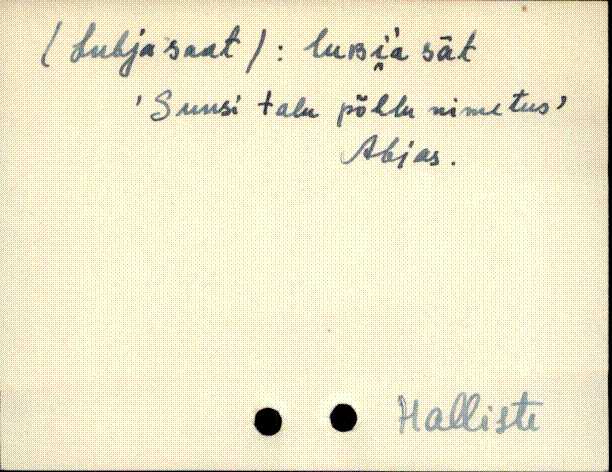 (Lubja saat): luʙi̯a sāt
'Suusi talu põllu nimetus'
Abjas.
Halliste